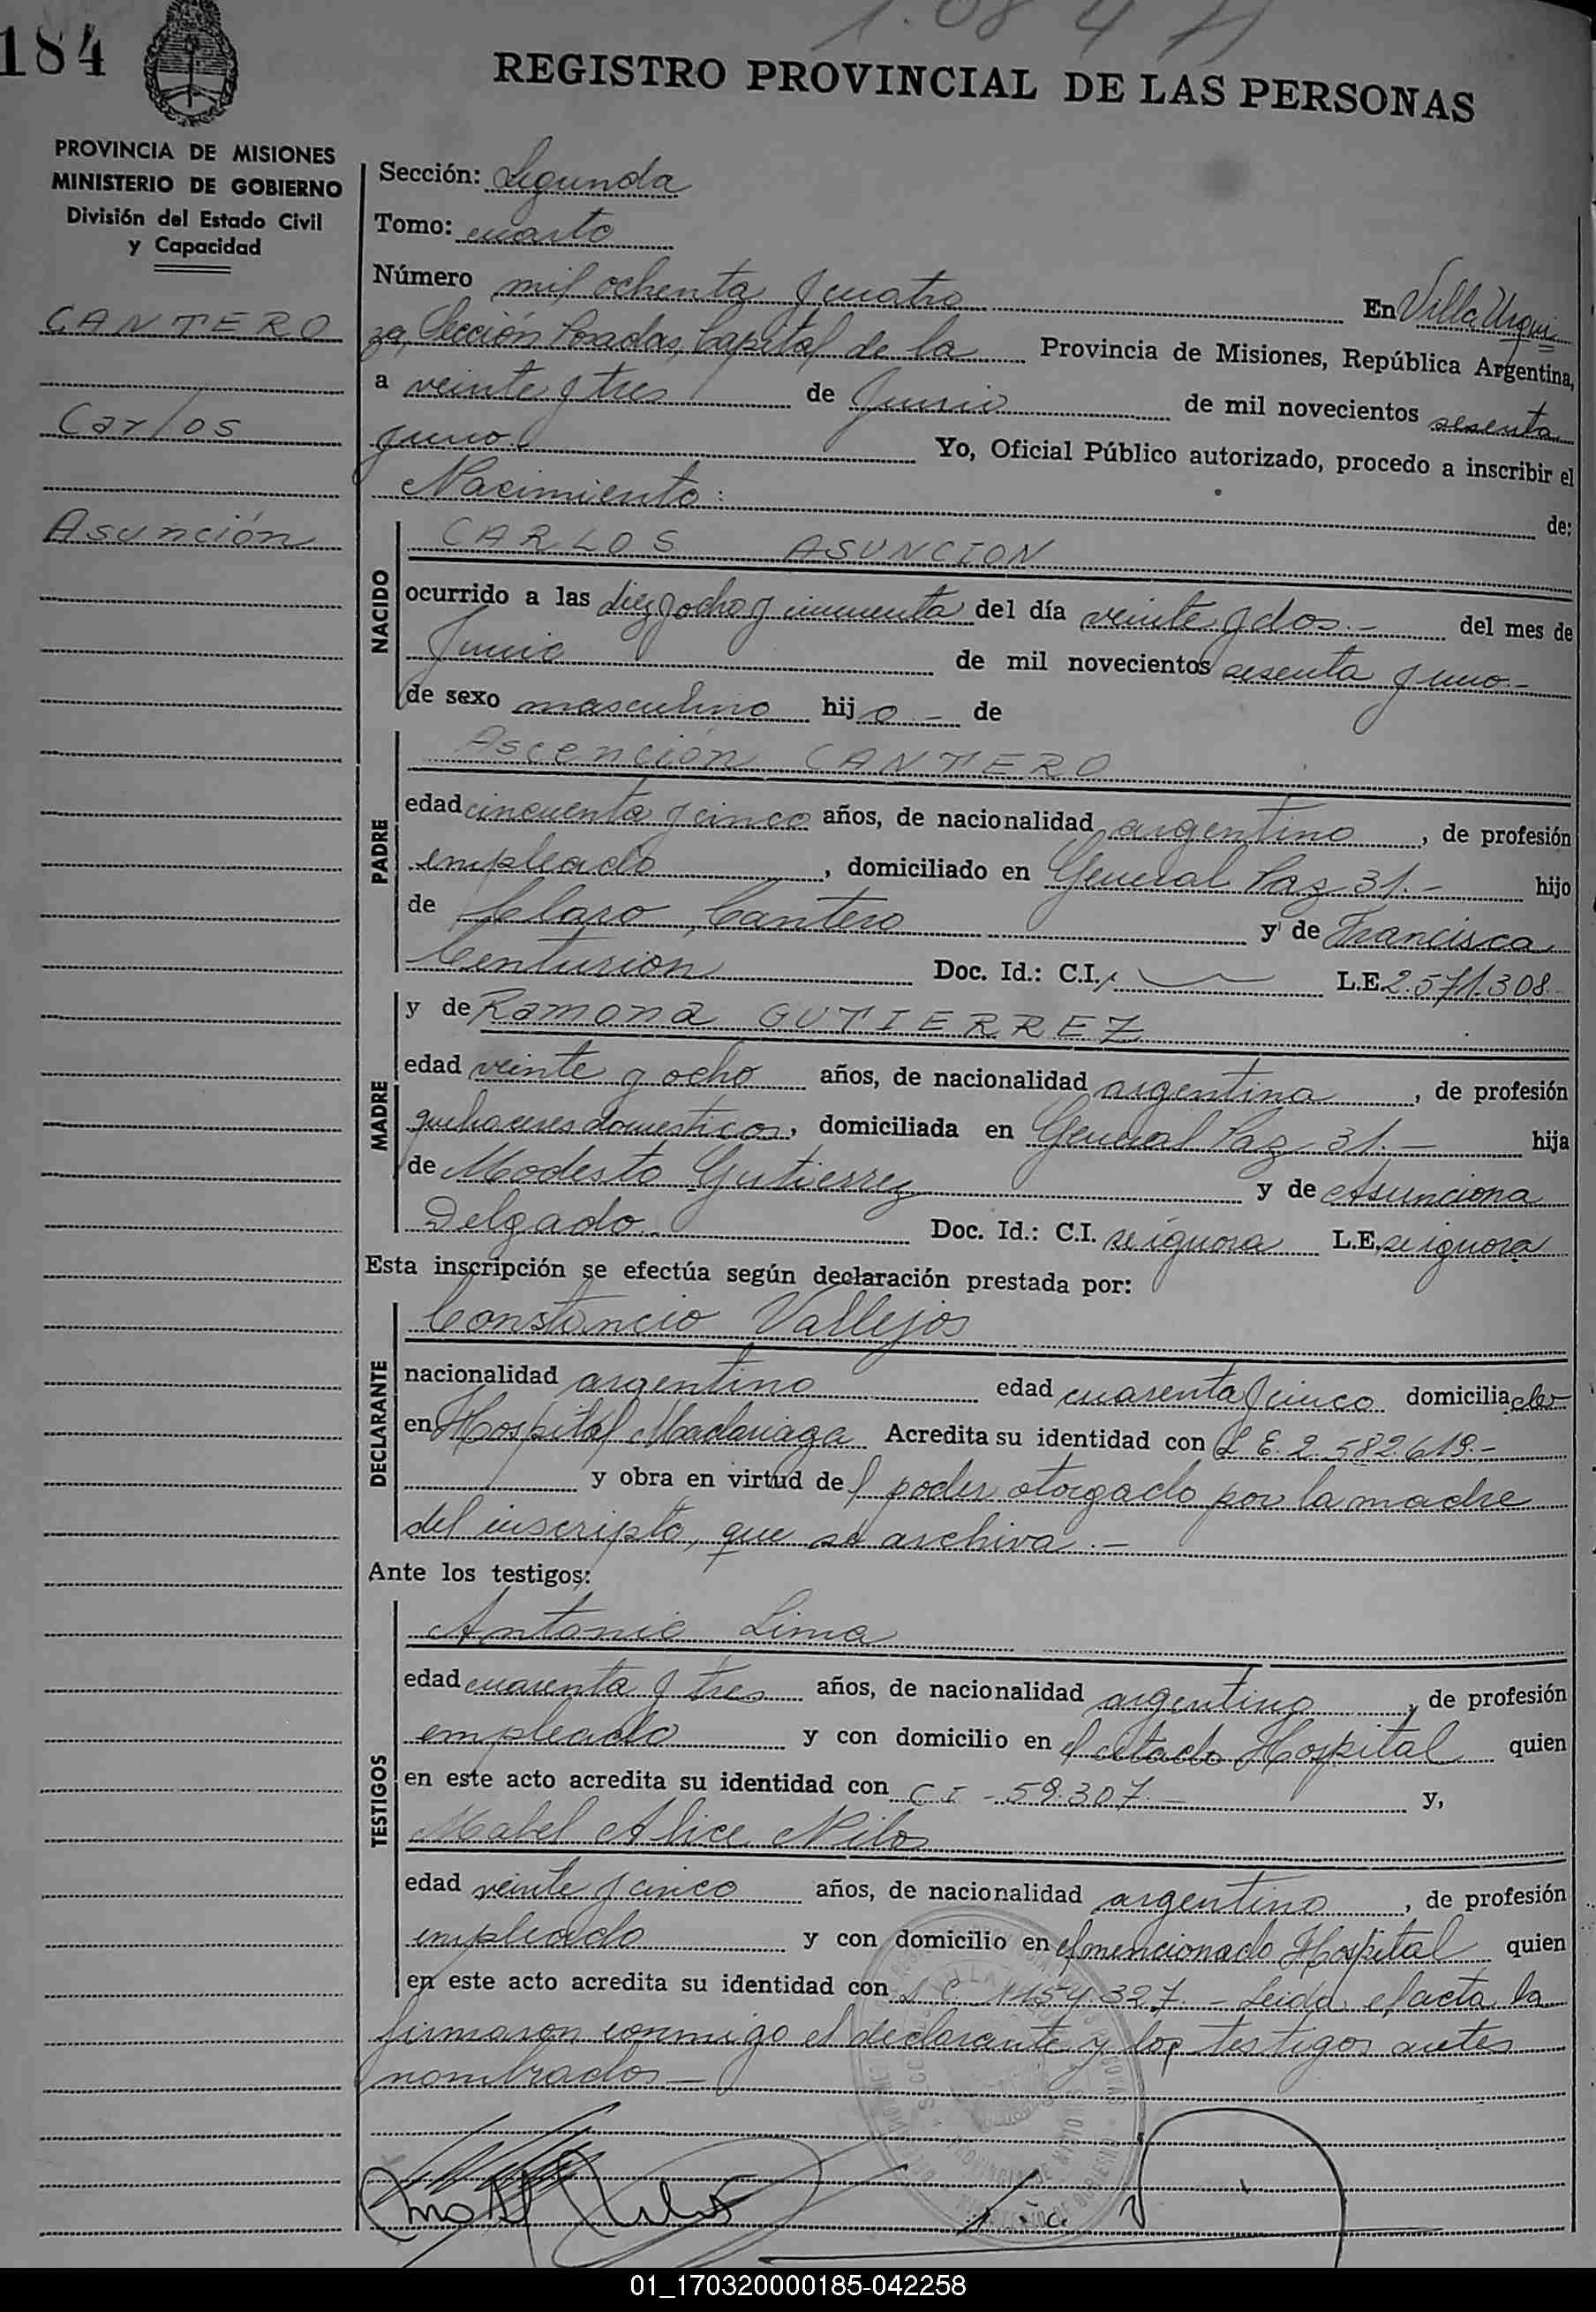 184
1.084
REGISTRO PROVINCIAL DE LAS PERSONAS
PROVINCIA DE MISIONES
MINISTERIO DE GOBIERNO
División del Estado Civil
y Capacidad
CANTERO
Carlos
Asunción
Sección: Segunda
Tomo: cuarto
Número mil ochenta y cuatro En Villa Urqui
za, Sección Posadas, Capital de la Provincia de Misiones, República Argentina,
a veinte y tres de Junio de mil novecientos sesenta
y uno Yo, Oficial Público autorizado, procedo a inscribir el
Nacimiento: de:
NACIDO
CARLOS ASUNCION
ocurrido a las diez y ocho y cincuenta del día veinte y dos.- del mes de
Junio de mil novecientos sesenta y uno.-
de sexo masculino hijo - de
PADRE
Ascención CANTERO
edad cincuenta y cinco años, de nacionalidad argentino, de profesión
empleado, domiciliado en General Paz 31.- hijo
de Claro Cantero y de Francisca
Centurión Doc. Id.: C.I. L.E. 2.571.308-
MADRE
y de Ramona GUTIERREZ
edad veinte y ocho años, de nacionalidad argentina, de profesión
quehaceres domesticos, domiciliada en General Paz 31.- hija
de Modesto Gutierrez y de Asunciona
Delgado. Doc. Id.: C.I. se ignora L.E. se ignora
Esta inscripción se efectúa según declaración prestada por:
DECLARANTE
Constancio Vallejos
nacionalidad argentino edad cuarenta y cinco domiciliado
en Hospital Madariaga Acredita su identidad con L E. 2.582.619.-
y obra en virtud del poder otorgado por la madre
del inscripto, que se archiva.-
Ante los testigos:
TESTIGOS
Antonio Lima
edad cuarenta y tres años, de nacionalidad argentino, de profesión
empleado y con domicilio en el citado Hospital quien
en este acto acredita su identidad con C I - 59.307.- y,
Mabel Alice
edad veinte y cinco años, de nacionalidad argentina, de profesión
empleada y con domicilio en el mencionado Hospital quien
en este acto acredita su identidad con L C. 1154.327.- Leida el acta la
firmaron conmigo el declarante y los testigos antes
nombrados.-
01_170320000185-042258